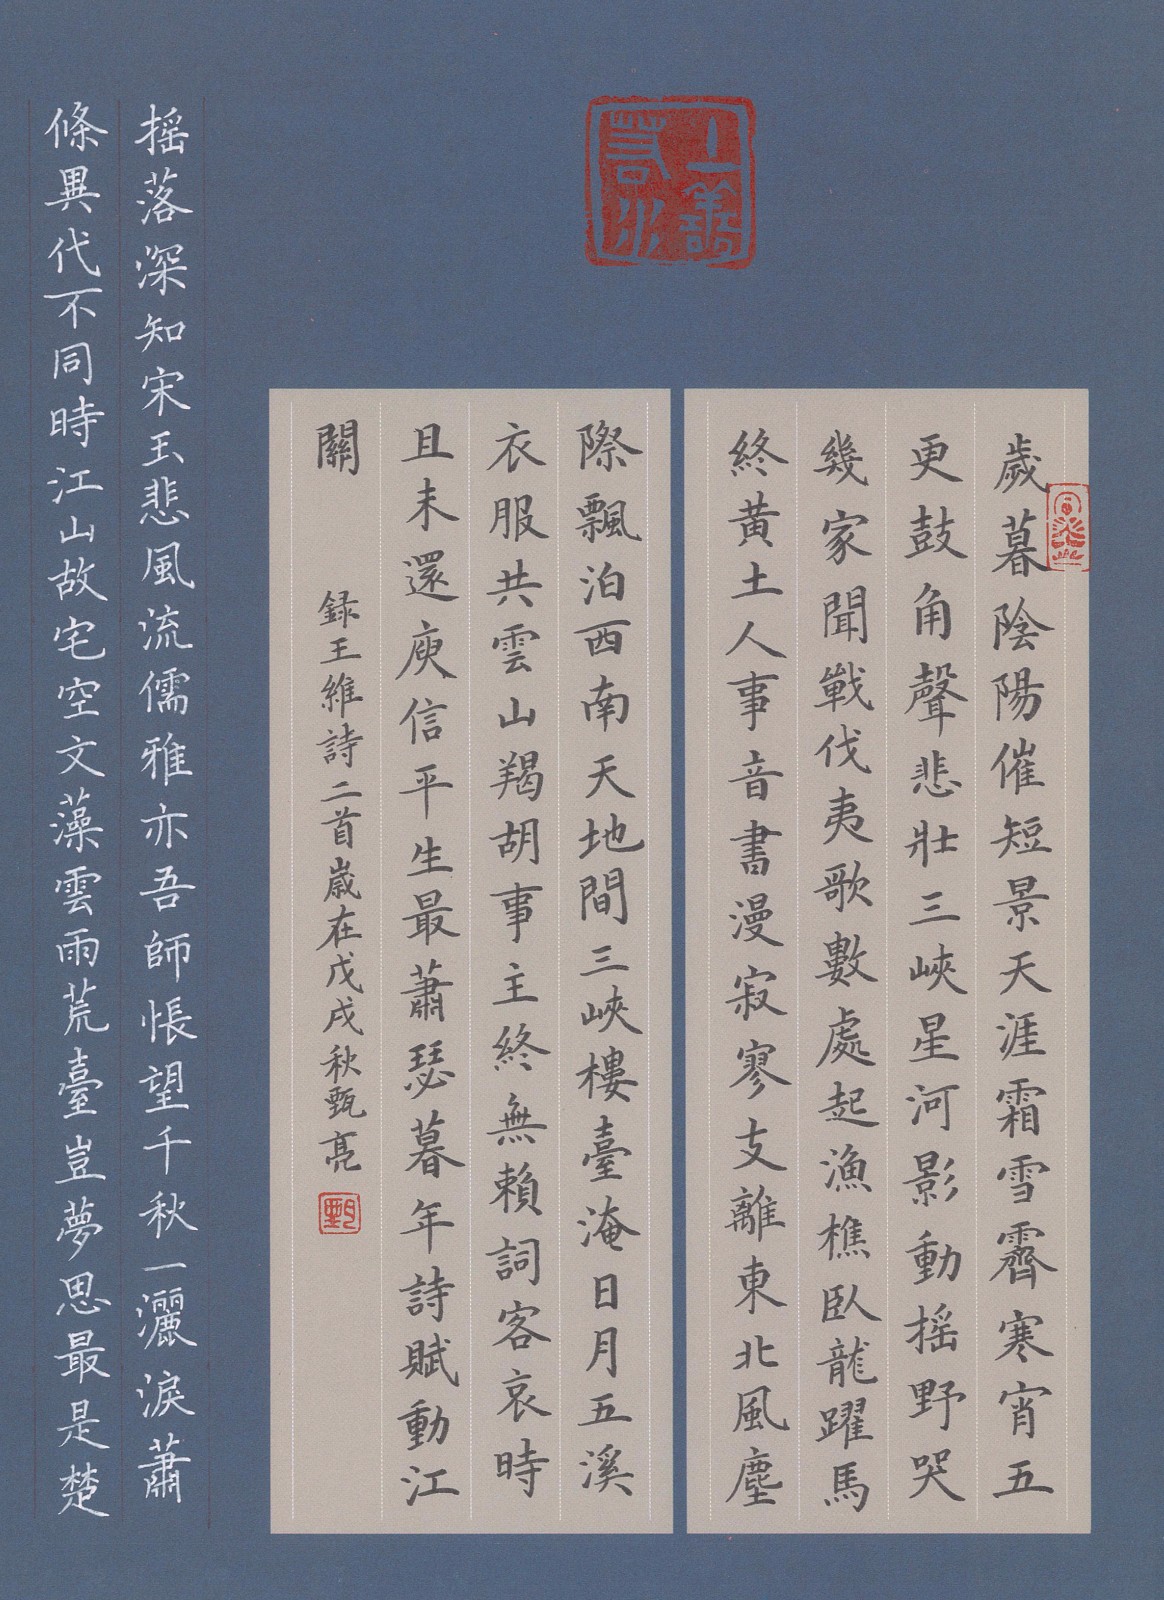 上善若水
歲暮陰陽催短景天涯霜雪霽寒宵五
更鼓角聲悲壯三峽星河影動搖野哭
幾家聞戰伐夷歌數處起漁樵臥龍躍馬
終黃土人事音書漫寂寥支離東北風塵
際飄泊西南天地間三峽樓臺淹日月五溪
衣服共雲山羯胡事主終無賴詞客哀時
且未還庾信平生最蕭瑟暮年詩賦動江
關
録王維詩二首嵗在戊戌秋甄亮
甄
搖落深知宋玉悲風流儒雅亦吾師悵望千秋一灑淚蕭
條異代不同時江山故宅空文藻雲雨荒臺豈夢思最是楚